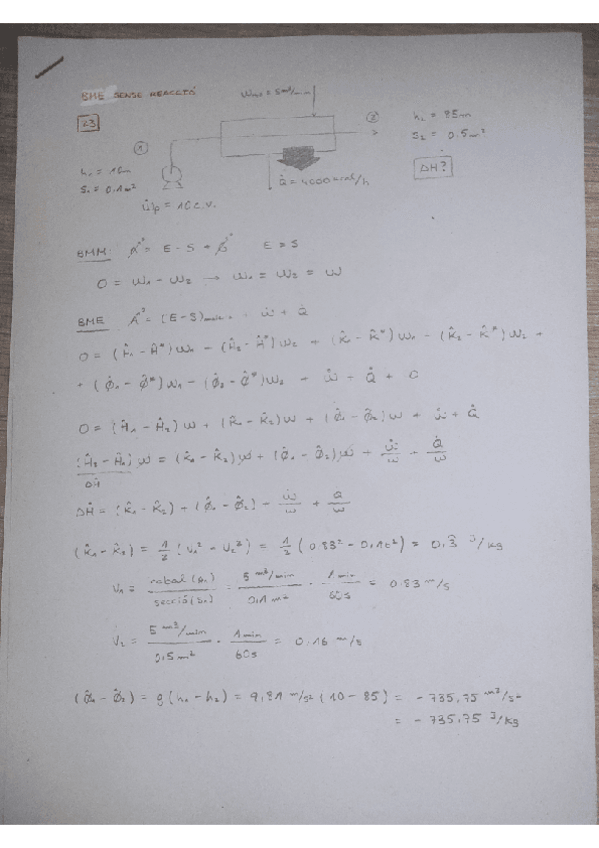 BME SENSE REACCIÓ
23
②
h₂ = 85m
①
S₂ = 0,5m²
h₁ = 10m
ΔH?
S₁ = 0,1m²
Q̇ = 4000 kcal/h
Ẇp = 10 C.V.
BMM: E - S E = S
0 = W₁ - W₂ → W₁ = W₂ = W
BME
0 = (Ĥ₁ - Ĥ*)W₁ - (Ĥ₂ - Ĥ*)W₂ + (K̂ - K̂*)W₁ - (K̂₂ - K̂*)W₂ +
+ (Φ̂₁ - Φ̂*)W₁ - (Φ̂₂ - Φ̂*)W₂
0 = (Ĥ₁ - Ĥ₂)W + (K̂₁ - K̂₂)W + (Φ̂₁ - Φ̂₂)W + Ẇ + Q̇
(Ĥ₂ - Ĥ₁)W = (K̂₁ - K̂₂)W + (Φ̂₁ - Φ̂₂)W + Ẇ/W + Q̇/W
ΔĤ
ΔĤ = (K̂₁ - K̂₂) + (Φ̂₁ - Φ̂₂) - Ẇ/W + Q̇/W
(K̂₁ - K̂₂) = 1/2 (V₁² - V₂²) = 1/2 (0,83² - 0,16²) = 0,3 J/kg
V₁ = cabal (W₁) / secció (S₁) = 5 m³/min / 0,1 m² · 1 min / 60s = 0,83 m/s
V₂ = 5 m³/min / 0,5 m² · 1 min / 60s = 0,16 m/s
(Φ̂₁ - Φ̂₂) = g(h₁ - h₂) = 9,81 m/s² (10 - 85) = - 735,75 m²/s²
= - 735,75 J/kg